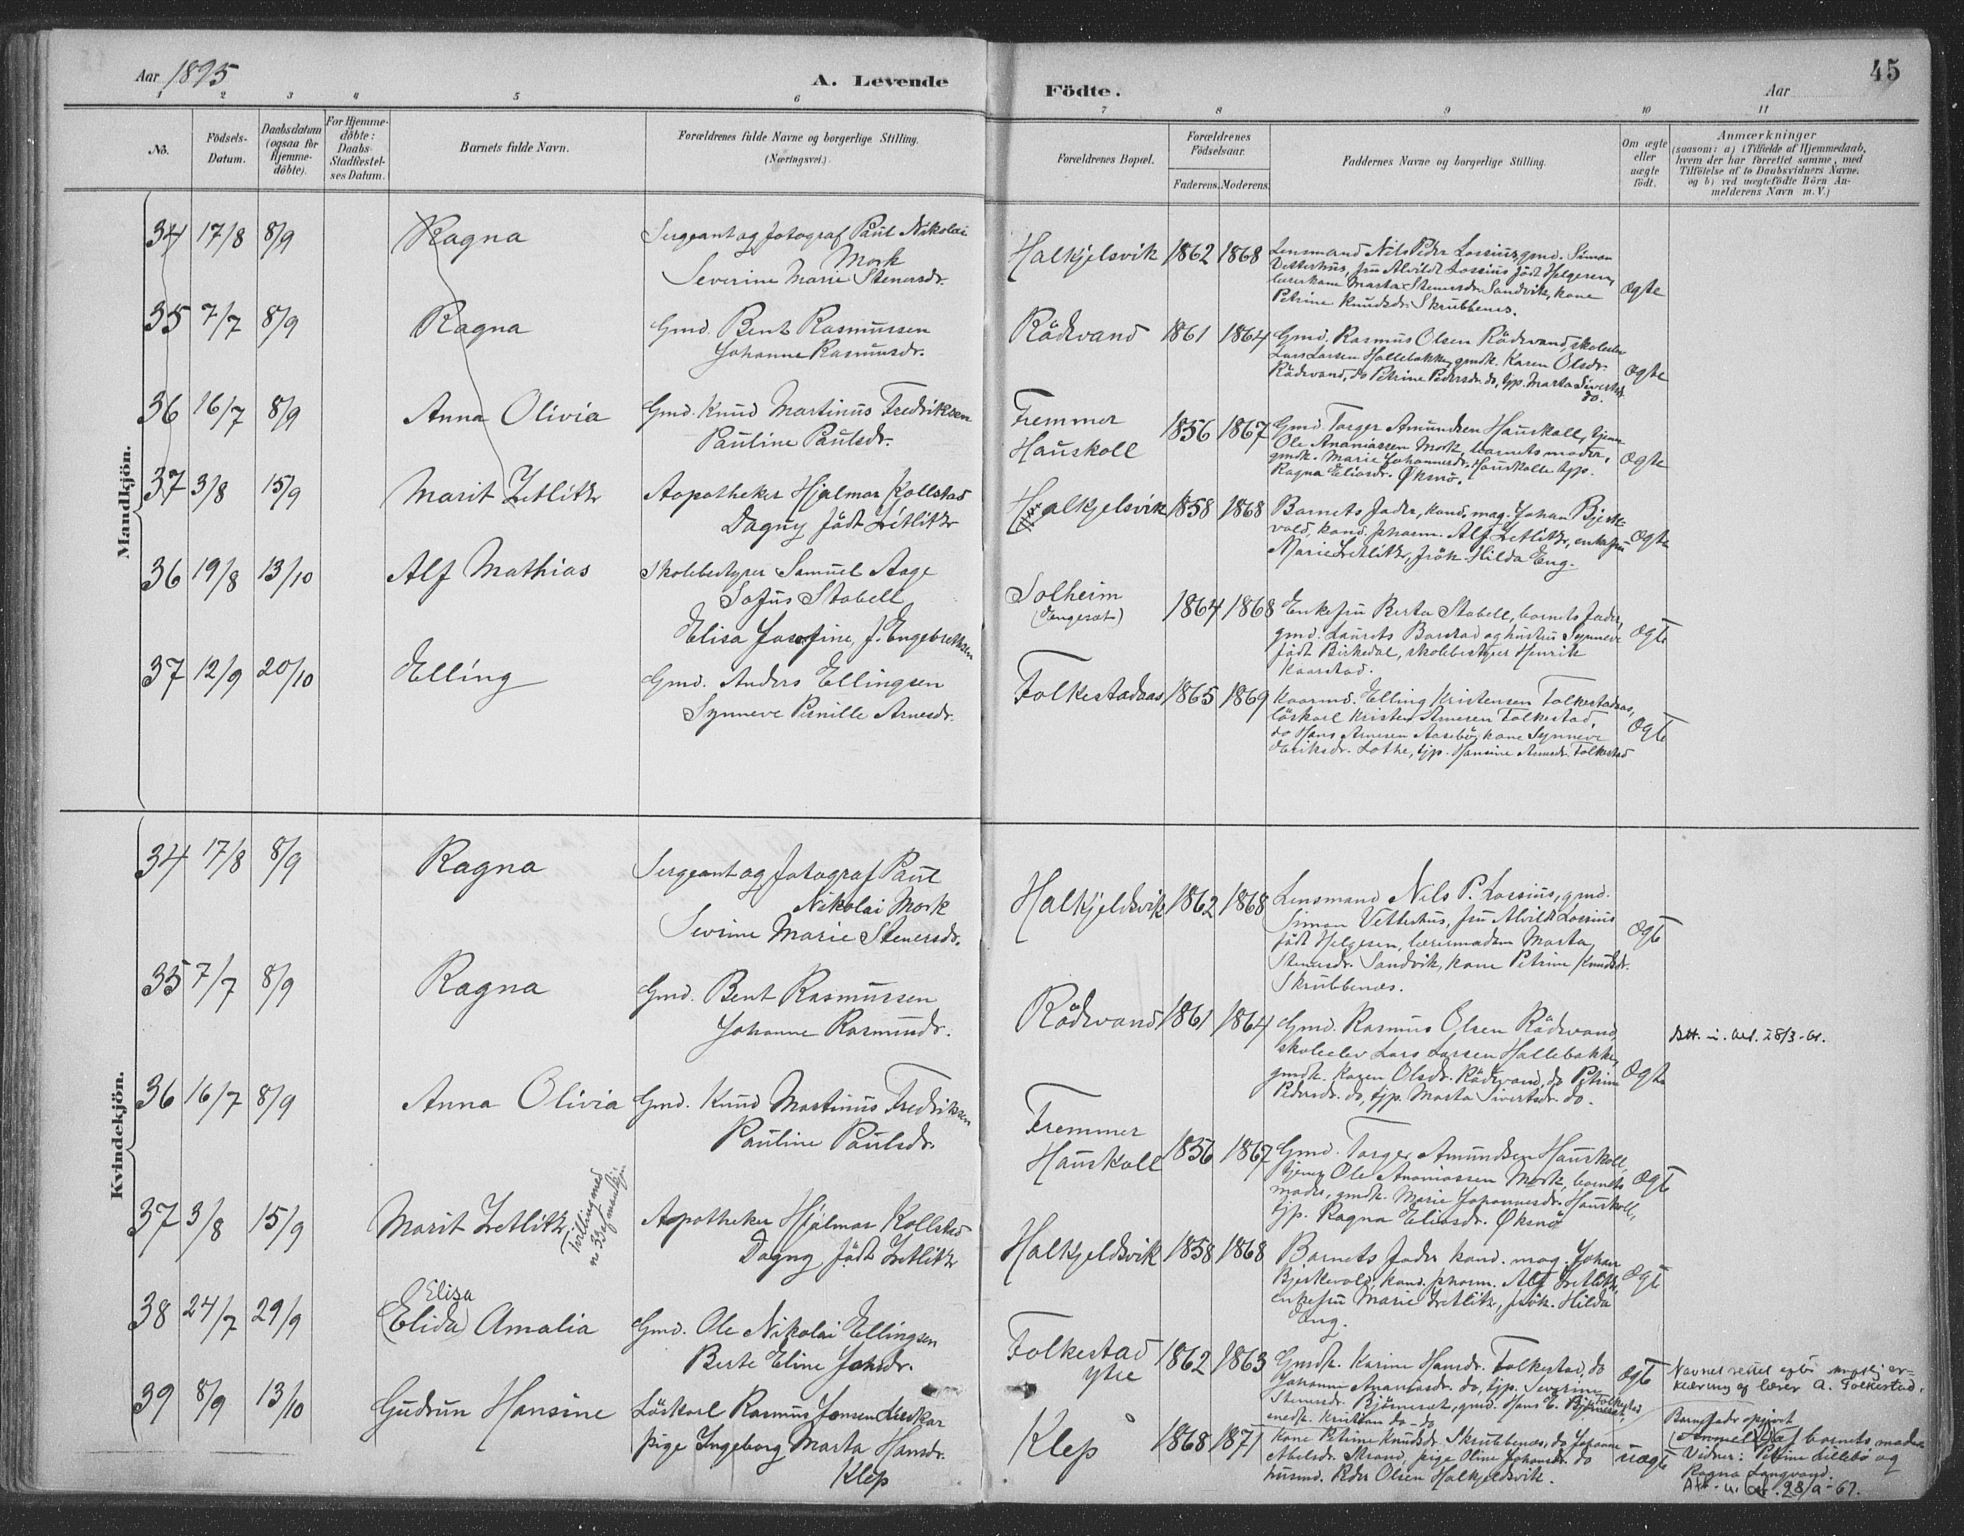 Aar 1895
A. Levende
Födte.
Aar
45
1 2 3 4 5 6 7 8 9 10 11
No.
Födsels-Datum.
Daabsdatum (ogsaa for Hjemme-döbte).
For Hjemme-döbte: Daabs-Stadfestel-ses Datum.
Barnets fulde Navn.
Forældrenes fulde Navne og borgerlige Stilling. (Næringsvei.)
Forældrenes Bopæl.
Forældrenes Födselsaar.
Faderens. Moderens.
Faddernes Navne og borgerlige Stilling.
Om ægte eller uægte födt.
Anmærkninger
(saasom: a) i Tilfælde af Hjemmedaab, hvem der har forrettet samme, med Tilföielse af to Daabsvidners Navne. og b) ved uægtefödte Börn An-melderens Navn m. V.)
Mandkjön.
34 17/8 8/9 Ragna
Sergeant og fotograf Paul Nikolai
Mork
Severine Marie Stenersdr.
Halkjelsvik 1862 1868
Lensmand Nils Peder Lossius, gmd. Simon
Vetterhus, fru Alvilde Lossius födt Helgesen,
lærerkone Marta Stenersdr. Sandvik, kone
Petrine Knudsdr. Skrubbenes.
Ægte
35 7/7 8/9 Ragna
Gmd. Bent Rasmussen
Johanne Rasmusdr.
Rödvand 1861 1864
Gmd. Rasmus Olsen Rödvand, skoleelev
Lars Larsen Hallebakke, gmdk. Karen Olsdr.
Rödvand, do Petrine Pedersdr. do, tjp. Marta Sivertsdr.
do.
Ægte
36 16/7 8/9 Anna Olivia
Gmd. Knud Martinus Fredriksen
Pauline Paulsdr.
Fremmer
Hauskoll
1856 1867
Gmd. Torger Amundsen Hauskoll, tjener
Ole Ananiassen Mork, barnets moder,
gmdk. Marie Johannesdr. Hauskolle tjp.
Ragna Eliasdr. Øksnö.
Ægte
37 3/8 15/9 Marit Zetlitz
Aopotheker Hjalmar Kollstad
Dagny födt Zetlitz
Halkjelsvik 1858 1868
Barnets fader, kand. mag. Johan Bjerke-
vold, kand. pharm. Alf Zetlitz, enkefru
Marie Zetlitz, frök. Hilda Eng.
Ægte
36 19/8 13/10 Alf Mathias
Skolebestyrer Samuel Aage
Sofus Stabell
Elisa Josefine, f. Engebretsen
Solheim
(Engeset)
1864 1868
Enkefru Berta Stabell, barnets fader,
gmd. Laurits Barstad og hustru Synneve
födt Birkedal, skolebestyrer Henrik
Kaarstad.
Ægte
37 12/9 20/10 Elling
Gmd. Anders Ellingsen
Synneve Pernille Arnesdr.
Folkestadaas 1865 1869
Kaarmd. Elling Kristensen Folkestadaas,
löskarl Kristen Arnesen Folkestad,
do Hans Arnesen Aasebö, kone Synneve
Eriksdr. Lothe, tjp. Hansine Arnesdr. Folkestad
Ægte
Kvindekjön.
34 17/8 8/9 Ragna
Sergeant og fotograf Paul
Nikolai Mork
Sevrine Marie Stenersdr.
Halkjeldsvik 1862 1868
Lensmand Nils P. Lossius, gmd.
Simon Vetterhus, fru Alvilde Lossius
födt Helgesen, lærermadam Marta
Stenersdr. Sandvik, kone Petrine Knudsdr.
Skrubbenæs.
Ægte
35 7/7 8/9 Ragna
Gmd. Bent Rasmussen
Johanne Rasmusdr.
Rödvand 1861 1864
Gmd. Rasmus Olsen Rödvand,
skoleelev Lars Larsen Hallebakke,
gmdk. Karen Olsdr. Rödvand, do Petrine
Pedersdr. do, tjp. Marta Sivertsdr. do.
Ægte
Att. u. 28/3-61.
36 16/7 8/9 Anna Olivia
Gmd. Knud Martinus Fredriksen
Pauline Paulsdr.
Fremmer
Hauskoll
1856 1867
Gmd. Torger Amundsen Hauskoll,
tjener Ole Ananiassen Mork, barnets
moder, gmdk. Marie Johannesdr. Hauskoll,
tjp. Ragna Eliasdr. Øksnö
Ægte
37 3/8 15/9 Marit Zetlitz
Tvilling med
no 33 af mandkjøn
Apotheker Hjalmar Kollstad
Dagny födt Zetlitz
Halkjeldsvik 1858 1868
Barnets fader kand. mag. Johan
Bjerkevold, kand. pharm. Alf Zetlitz,
enkefru Marie Zetlitz, frök. Hilda
Eng.
Ægte
Elisa
38 24/7 29/9 (Elida) Amalia
Gmd. Ole Nikolai Ellingsen
Berte Eline Johsdr.
Folkestad
ytre
1862 1863
Gmdk. Karine Hansdr. Folkestad, do
Johanne Ananiasdr. do, tjp. Severine
Stenersdr. Björneset, gmd. Hans E. Björneset,
Folkestad
Kristian do - do
Ægte
Navnet rettet efter er-
klæring af lærer A. Folkestad.
39 8/9 13/10 Gudrun Hansine
Löskarl Rasmus Jonsen
pige Ingeborg Marta Hansdr.
Klep
Klep 1868 1871
Kone Petrine Knudsdr. Skrubbenæs, do Johanne
Abelsdr. Strand, pige Oline Johansdr. do
husmd. Peder Olsen Halkjeldsvik.
Uægte
Barnefader opgivet
af barnets moder
Vidner: Petrine Lillebö og
Ragna Langvand.
Att. u. 28/9-61.